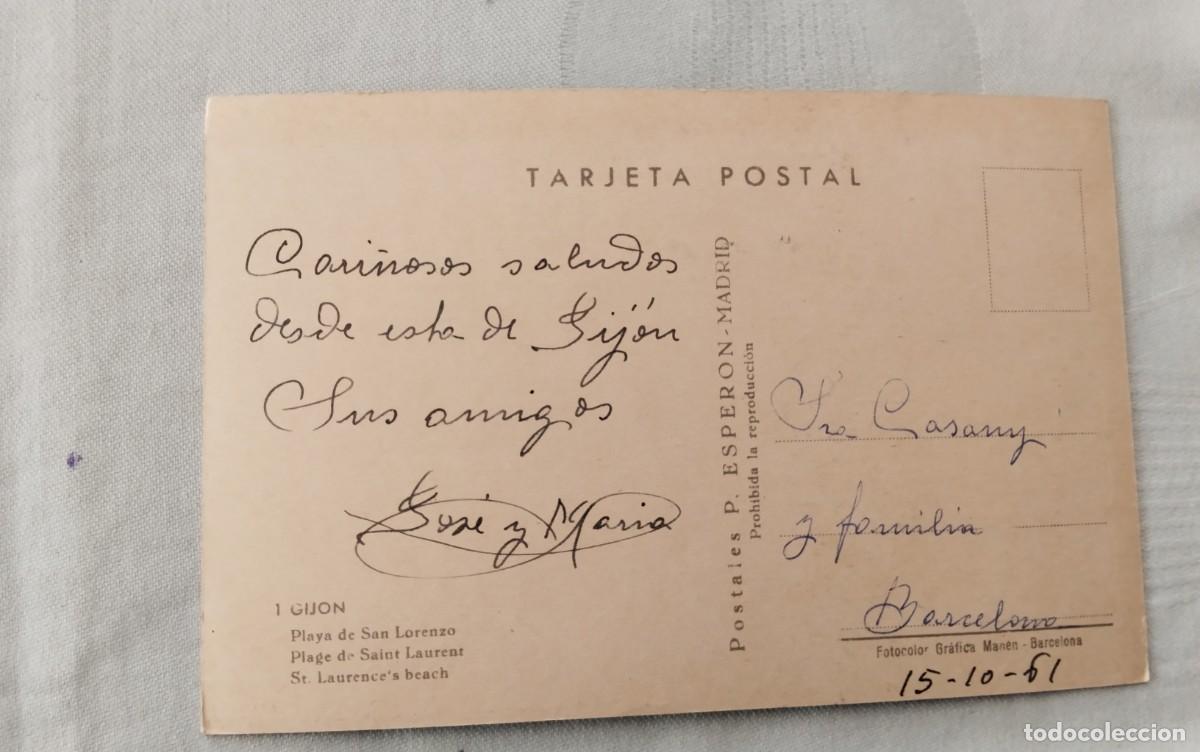 TARJETA POSTAL
Cariñosos saludos
desde esta de Gijón
Sus amigos
José y Maria
1 GIJON
Playa de San Lorenzo
Plage de Saint Laurent
St. Laurence's beach
Postales P. ESPERON - MADRID
Prohibida la reproducción
Sra Casany
y familia
Barcelona
Fotocolor Gráfica Manén - Barcelona
15-10-61
todocoleccion